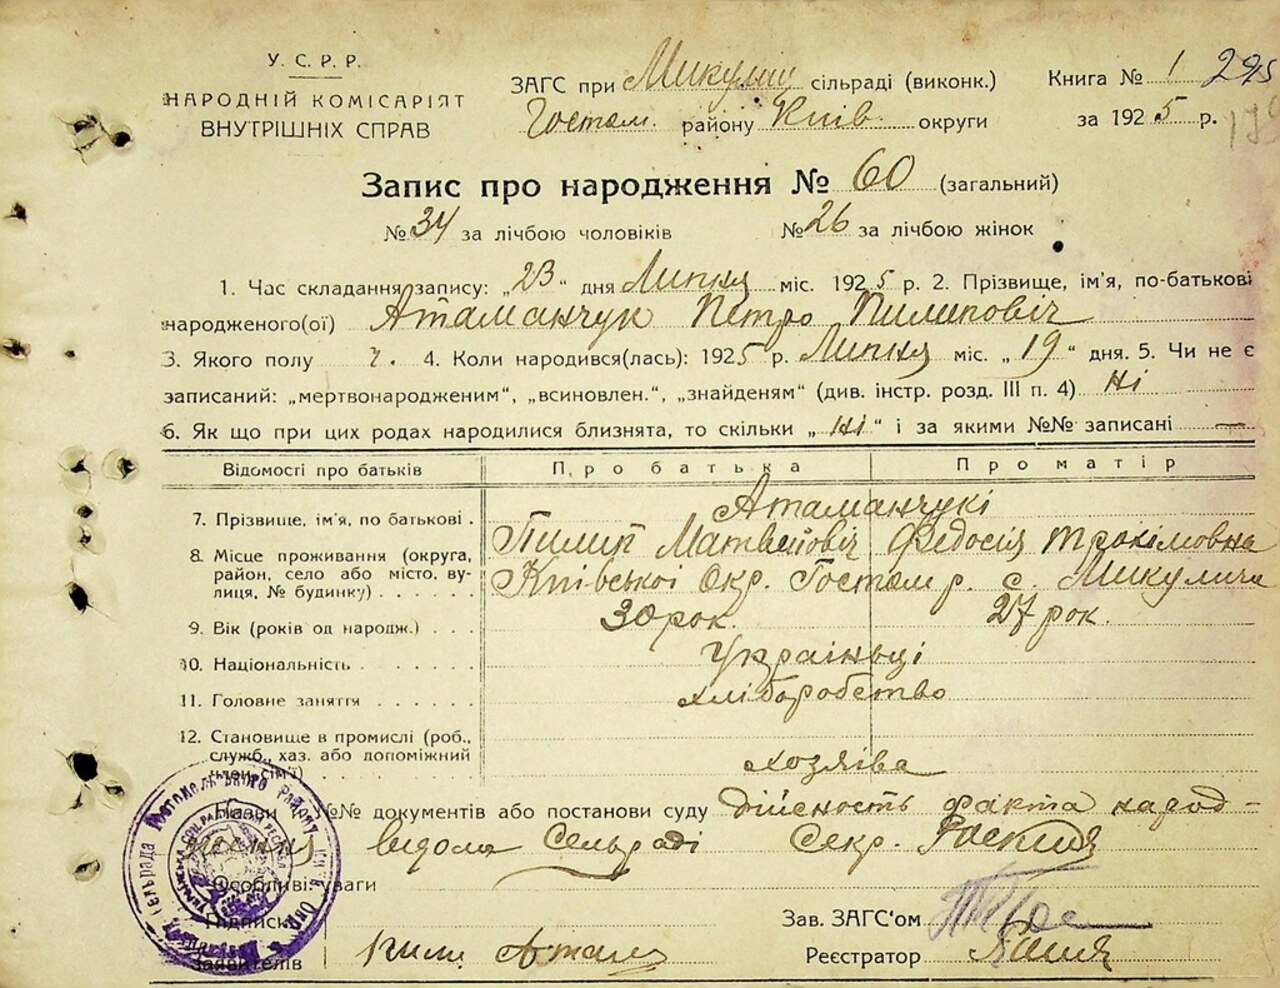 У. С. Р. Р.
НАРОДНІЙ КОМІСАРІЯТ
ВНУТРІШНІХ СПРАВ
ЗАГС при Микулич сільраді (виконк.) Книга № 1 295
Гостом. району Київ. округи за 1925 р. 179
Запис про народження № 60 (загальний)
№ 34 за лічбою чоловіків № 26 за лічбою жінок
1. Час складання запису: „23“ дня Липня міс. 1925 р. 2. Прізвище, ім'я, по-батькові
народженого(ої) Атаманчук Петро Пилипович
3. Якого полу ч. 4. Коли народився(лась): 1925 р. Липня міс. „19“ дня. 5. Чи не є
записаний: „мертвонародженим“, „всиновлен.“, „знайденям“ (див. інстр. розд. III п. 4) Ні
6. Як що при цих родах народилися близнята, то скільки „Ні“ і за якими №№ записані —
Відомості про батьків Про батька Про матір
7. Прізвище, ім'я, по батькові . Атаманчукі
Пилип Матвейовіч Федосія Трохімовна
8. Місце проживання (округа, район, село або місто, вулиця, № будинку) . . . . . . Київськоі Окр. Гостом р. с. Микуличи
9. Вік (років од народж.) . . . 30 рок. 27 рок.
10. Національність . . . . . . Украіньці
11. Головне заняття . . . . . . хліборобство
12. Становище в промислі (роб., служб., хаз. або допоміжний член сім'ї) . . . . . . хозяіва
Назви №№ документів або постанови суду Дійсность факта народ-
ження відома Сельраді Секр.
Особливі уваги
Підписи Зав. ЗАГС'ом
заявителів Реєстратор